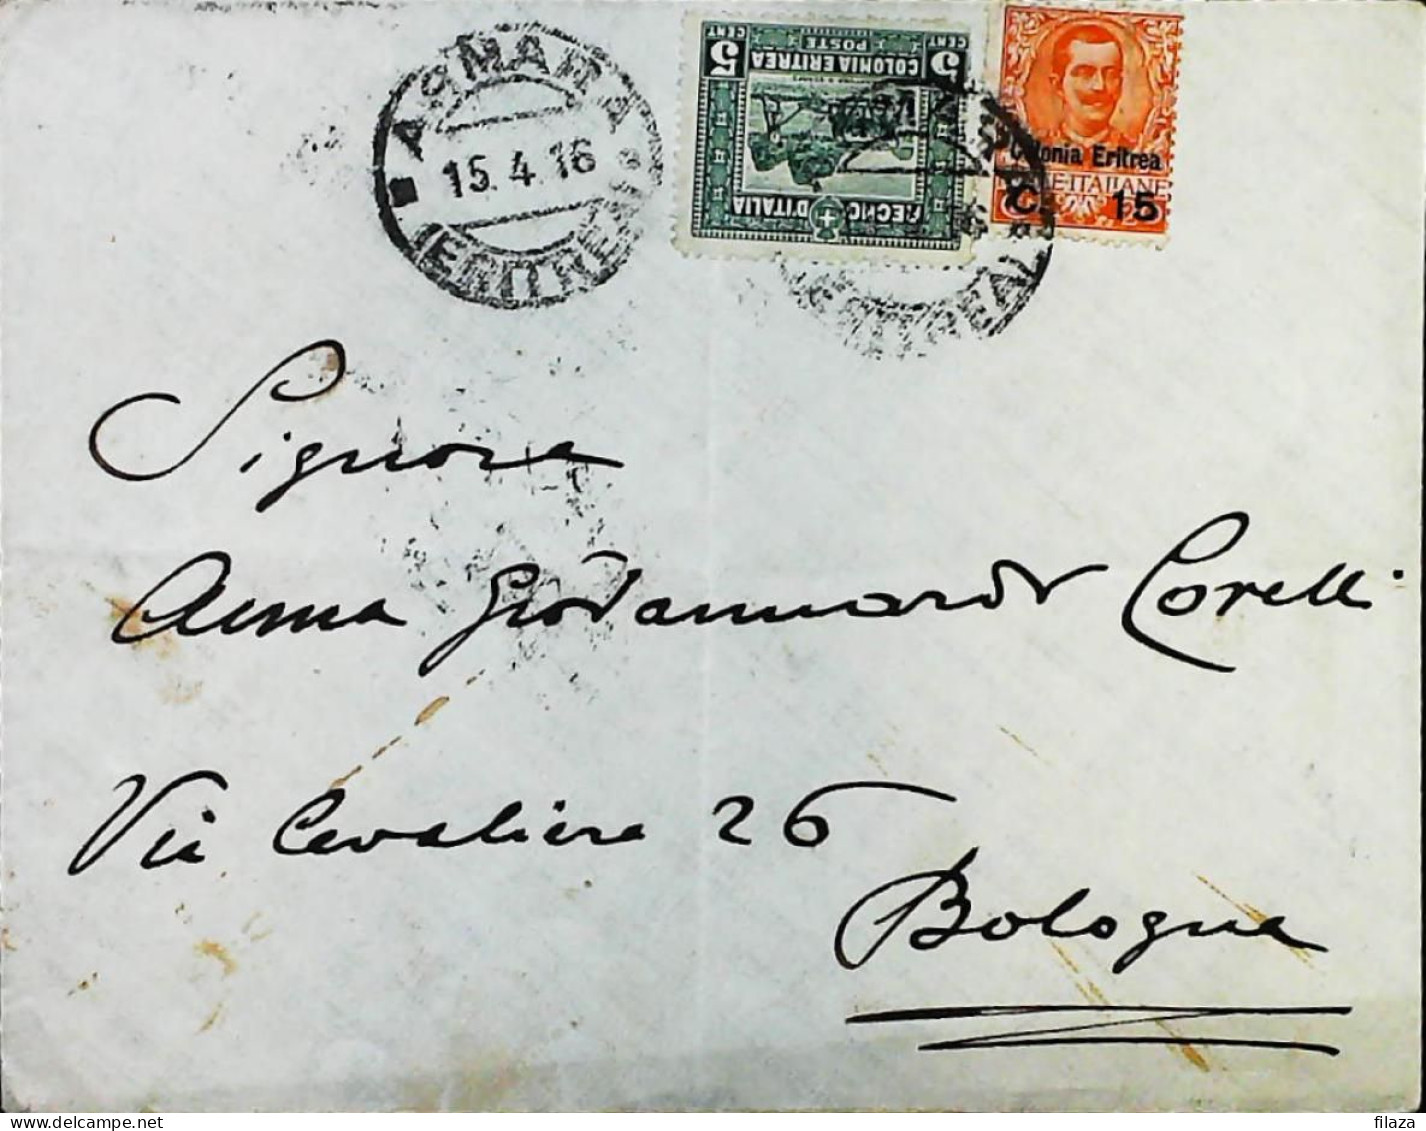 ASMARA
15.4.16
(ERITREA)
5 CENT
COLONIA ERITREA
POSTE
5 CENT
REGNO D'ITALIA
Colonia Eritrea
POSTE ITALIANE
C. 15
(ERITREA)
Signora
Anna Giovannardi Corelli
Via Cavaliera 26
Bologna
filaza